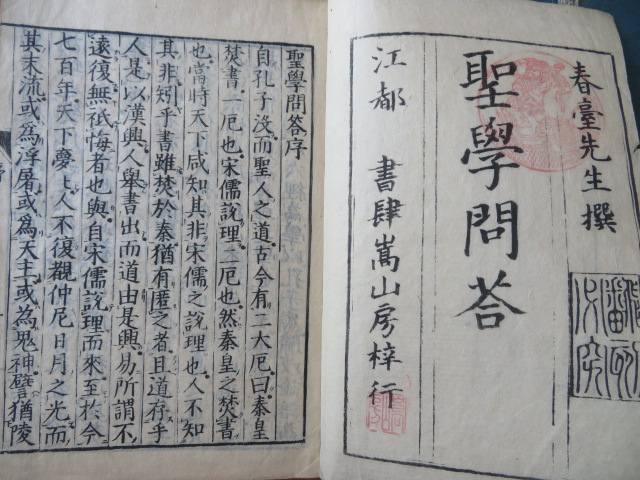 春臺先生撰
聖學問荅
江都 書肆嵩山房梓行
聖學問荅序
自孔子沒而聖人之道古今有二大厄曰秦皇
焚書一厄也宋儒說理二厄也然秦皇之焚書
也當時天下咸知其非宋儒之說理也人不知
其非矧乎書雖焚於秦猶有匿之者且道存乎
人是以漢興人舉書出而道由是興易所謂不
遠復無祇悔者也與自宋儒說理而來至於今
七百年天下夢〻人不復觀仲尼日月之光而
其末流或為浮屠或為天主或為鬼神譬猶陵